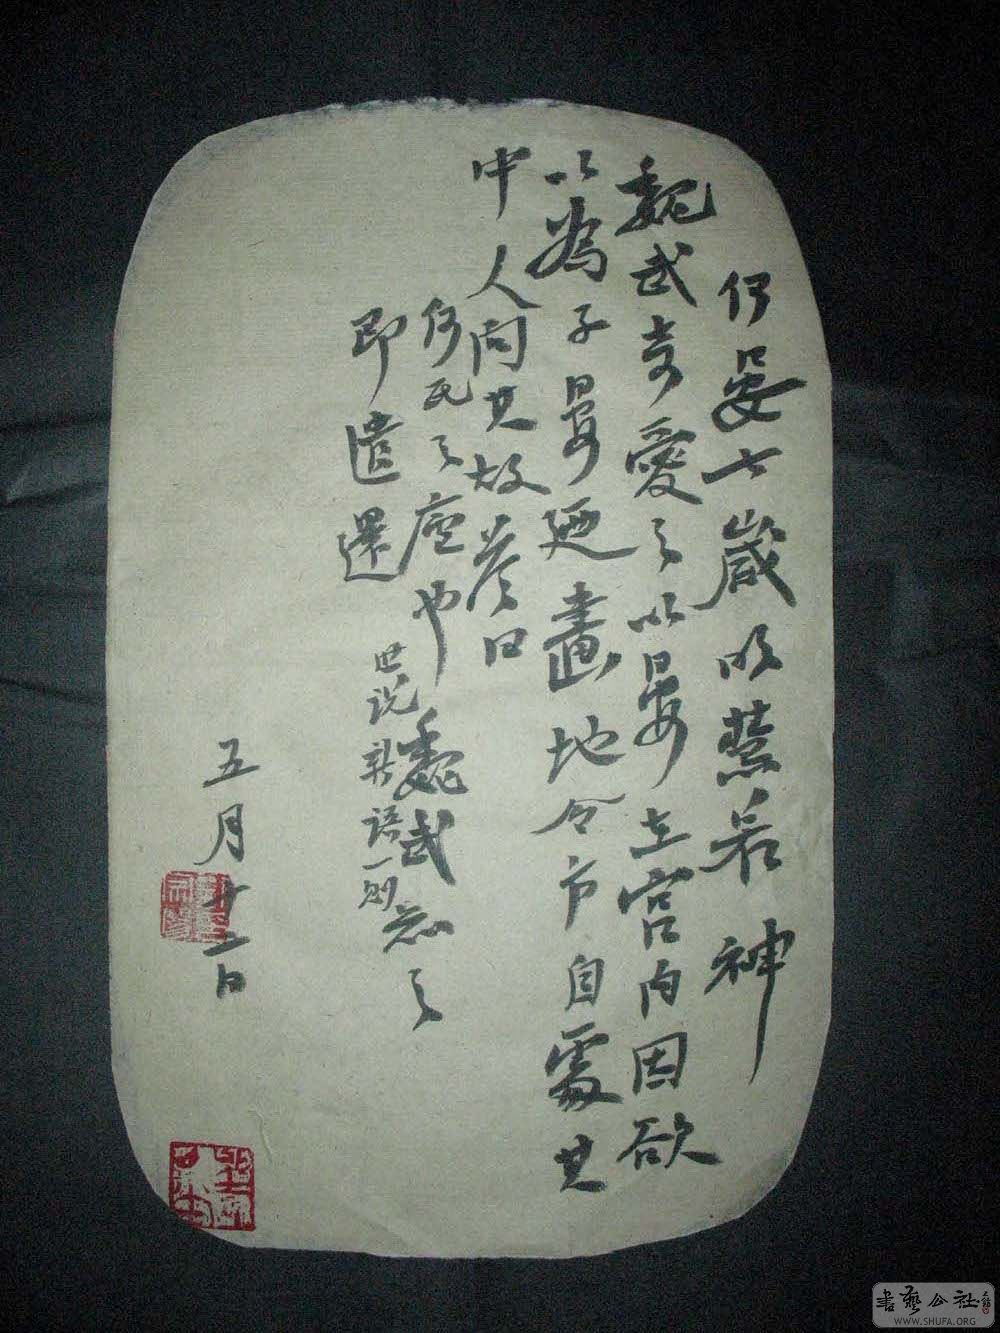 何晏七歲明慧若神
魏武奇愛之以晏在宮內因欲
以為子晏廼畫地令方自處其
中人問其故答曰
何氏之廬也魏武知之
即遣還
世说新语一则
五月十二日
書藝公社
WWW.SHUFA.ORG